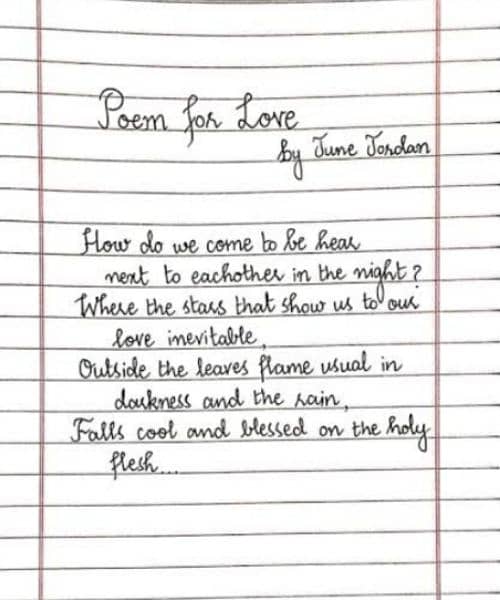 Poem for Love
by June Jordan
How do we come to be hear
next to eachother in the night?
Where the stars that show us to our
love inevitable,
Outside the leaves flame usual in
darkness and the rain,
Falls cool and blessed on the holy
flesh...